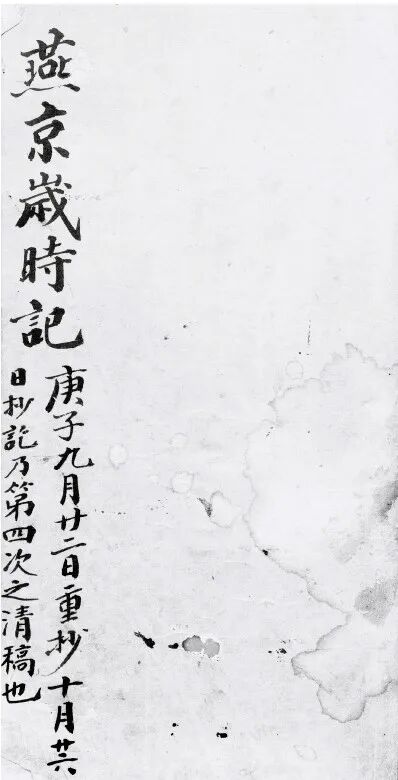 燕京歲時記
庚子九月廿二日重抄十月廿六
日抄訖乃第四次之清稿也